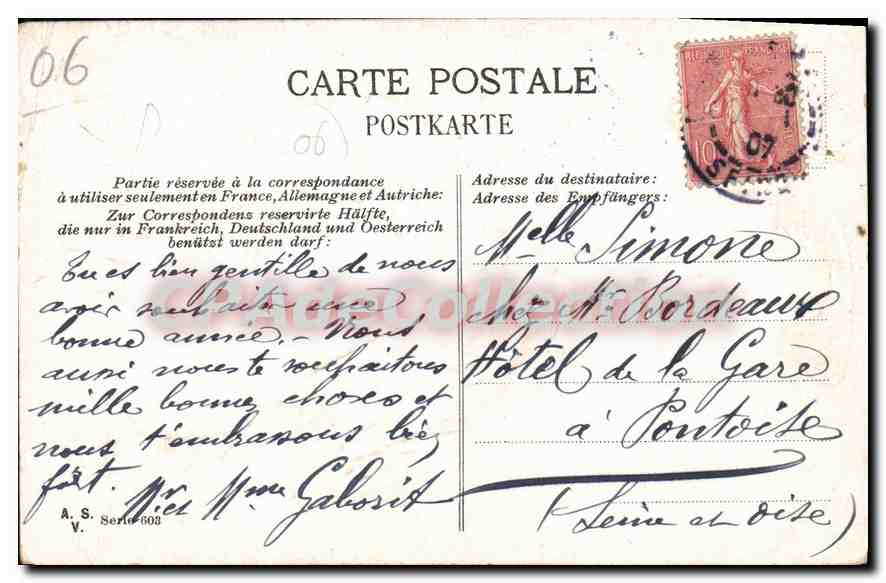 06
CARTE POSTALE
POSTKARTE
06
Partie réservée à la correspondance
à utiliser seulement en France, Allemagne et Autriche:
Zur Correspondenz reservirte Hälfte,
die nur in Frankreich, Deutschland und Oesterreich
benützt werden darf:
Tu es bien gentille de nous
avoir souhaité une
bonne année. - Nous
aussi nous te souhaitons
mille bonnes choses et
nous t'embrassons bien
fort.
Mr et Mme Gaborit
A. S.
V.
Serie 603
Adresse du destinataire:
Adresse des Empfängers:
Melle Simone
chez Mr Bordeaux
Hôtel de la Gare
à Pontoise
(Seine et Oise)
10
07
CPAdeCollection